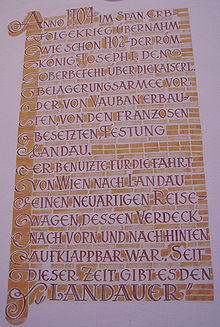 ANNO 1704 IM SPAN. ERB-
FOLGEKRIEG ÜBERNAHM,
WIE SCHON 1702 DER RÖM.
KÖNIG JOSEPH I. DEN
OBERBEFEHL ÜBER DIE KAISERL.
BELAGERUNGSARMEE VOR
DER VON VAUBAN ERBAU-
TEN VON DEN FRANZOSEN
BESETZTEN FESTUNG
LANDAU.
ER BENUTZTE FÜR DIE FAHRT
VON WIEN NACH LANDAU
EINEN NEUARTIGEN REISE-
WAGEN, DESSEN VERDECK
NACH VORN UND NACH HINTEN
AUFKLAPPBAR WAR. SEIT
DIESER ZEIT GIBT ES DEN
„LANDAUER"